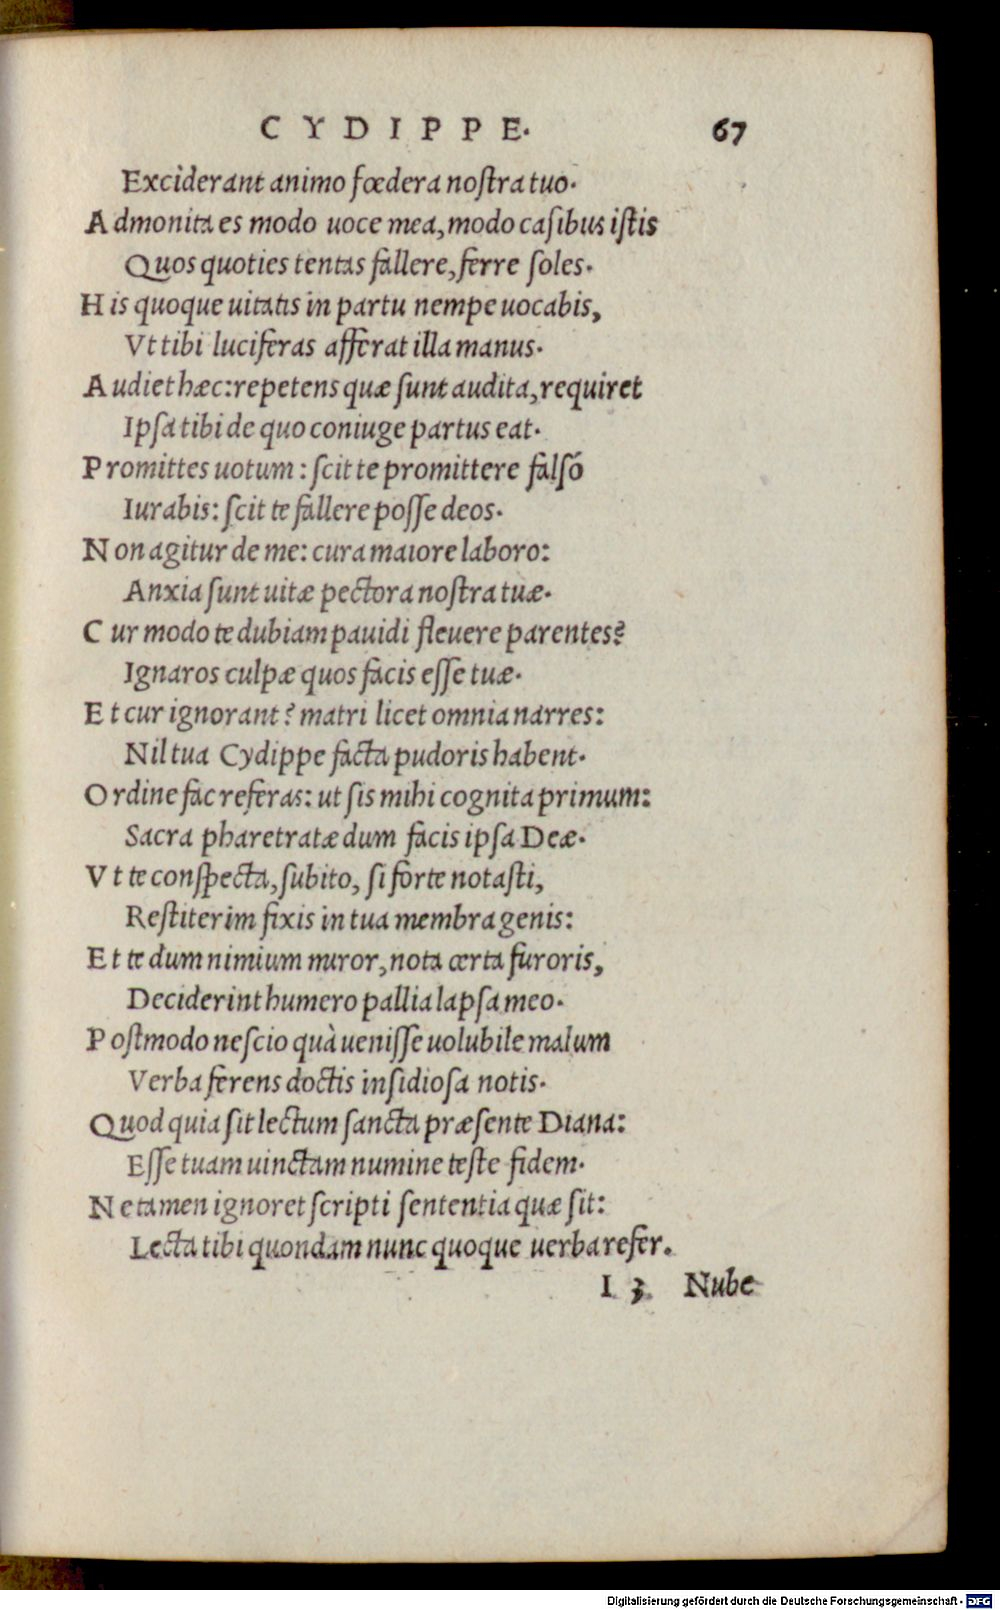 CYDIPPE. 67
Exciderant animo fœdera nostra tuo.
Admonita es modo uoce mea, modo casibus istis
Quos quoties tentas fallere, ferre soles.
His quoque uitatis in partu nempe uocabis,
Vt tibi luciferas afferat illa manus.
Audiet hæc: repetens quæ sunt audita, requiret
Ipsa tibi de quo coniuge partus eat.
Promittes uotum: scit te promittere falsó
Iurabis: scit te fallere posse deos.
Non agitur de me: cura maiore laboro:
Anxia sunt uitæ pectora nostra tuæ.
Cur modo te dubiam pauidi fleuere parentes?
Ignaros culpæ quos facis esse tuæ.
Et cur ignorant? matri licet omnia narres:
Nil tua Cydippe facta pudoris habent.
Ordine fac referas: ut sis mihi cognita primum:
Sacra pharetratæ dum facis ipsa Deæ.
Vt te conspecta, subito, si forte notasti,
Restiterim fixis in tua membra genis:
Et te dum nimium miror, nota certa furoris,
Deciderint humero pallia lapsa meo.
Postmodo nescio quà uenisse uolubile malum
Verba ferens doctis insidiosa notis.
Quod quia sit lectum sancta præsente Diana:
Esse tuam uinctam numine teste fidem.
Ne tamen ignoret scripti sententia quæ sit:
Lecta tibi quondam nunc quoque uerba refer.
I 3 Nube
Digitalisierung gefördert durch die Deutsche Forschungsgemeinschaft - DFG